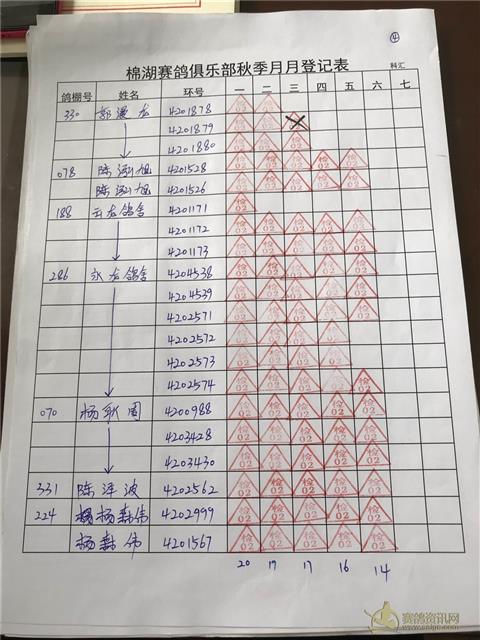 ④
棉湖赛鸽俱乐部秋季月月登记表
科汇
鸽棚号 姓名 环号 一 二 三 四 五 六 七
330 郭漫龙 4201878 检02 检02
4201879 检02 检02 检02
4201880 检02 检02 检02
078 陈泓旭 4201528 检02 检02 检02 检02 检02
陈泓旭 4201526 检02 检02 检02 检02 检02
188 云龙鸽舍 4201171 检02
4201172 检02 检02 检02 检02 检02
4201173 检02 检02 检02 检02 检02
286 永龙鸽舍 4204538 检02 检02 检02 检02 检02
4204539 检02 检02 检02 检02 检02
4202571 检02 检02 检02 检02 检02
4202572 检02 检02 检02 检02
4202573 检02 检02 检02 检02
4202574 检02 检02 检02 检02 检02
070 杨 周 4200988 检02 检02 检02 检02 检02
4203428 检02 检02 检02 检02 检02
4203430 检02 检02 检02 检02 检02
331 陈泽波 4202562 检02 检02 检02 检02 检02
224 杨森伟 4202999 检02 检02 检02 检02 检02
杨森伟 4201567 检02 检02 检02 检02 检02
20 19 17 16 14
赛鸽资讯网